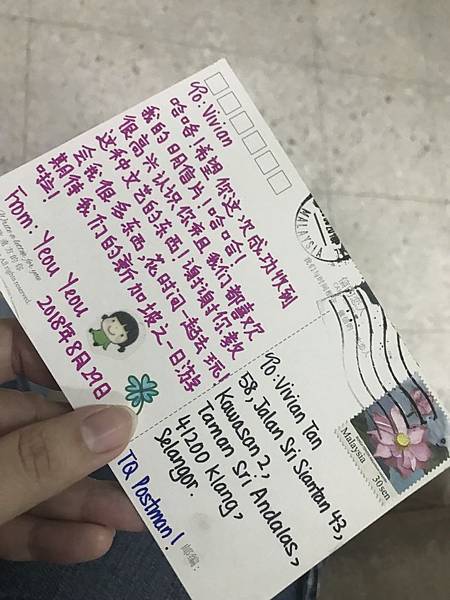 To: Vivian
哈哈！希望你这次成功收到
我的明信片！哈哈！
很高兴认识你有因我们都喜欢
这种文艺的东西！谢谢你教
会我很多东西,花时间一起去玩！
期待我们的新加坡之一日游
啦！
From: Yeou Yeou
2018年8月29日
All rights reserved.
To: Vivian Tan
58, Jalan Sri Siantan 43,
Kawasan 2,
Taman Sri Andalas,
41200 Klang,
Selangor.
TQ Postman!
邮编:
MALAYSIA
Malaysia
30 sen